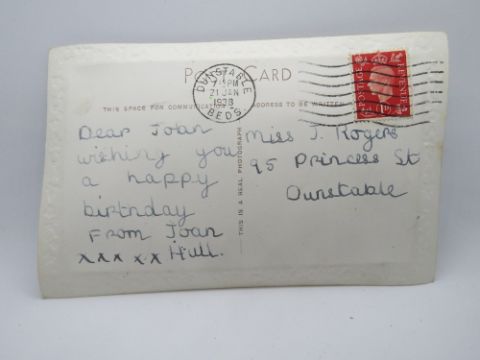 POST CARD
DUNSTABLE
7.15PM
21 JAN
1938
BEDS
POSTAGE REVENUE
THIS SPACE FOR COMMUNICATION ADDRESS TO BE WRITTEN
THIS IS A REAL PHOTOGRAPH
Dear Joan
wishing you
a happy
birthday
From Joan
xxx xx Hull.
Miss J. Rogers
95 Princess St
Dunstable